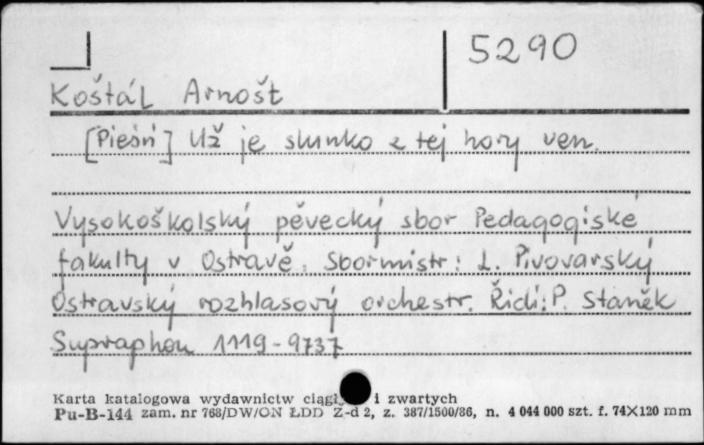 5290
Koštál Arnošt
[Pieśń] Už je slunko z tej hory ven.
Vysokoškolský pěvecký sbor Pedagogiské
fakulty v Ostravě. Sbormistr: L. Pivovarský
Ostravský rozhlasový orchestr. Řidi: P. Staněk
Supraphon 1119-9737
Karta katalogowa wydawnictw i zwartych
Pu-B-144 zam. nr 768/DW/ON ŁDD Z-d 2, z. 387/1500/86, n. 4 044 000 szt. f. 74X120 mm